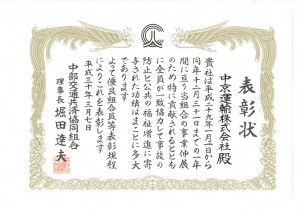 表彰状
中京運輸株式会社殿
貴社は平成二十九年一月一日から
同年十二月三十一日までの一年
間に亘り当組合の事業伸展
のため特に貢献されるととも
に全員が一致協力して事故の
防止と公共の福祉増進に寄
与された功績はまことに多大
であります
よって優良組合員等表彰規程
によりこれを表彰します
平成三十年三月七日
中部交通共済協同組合
理事長 堀田達夫